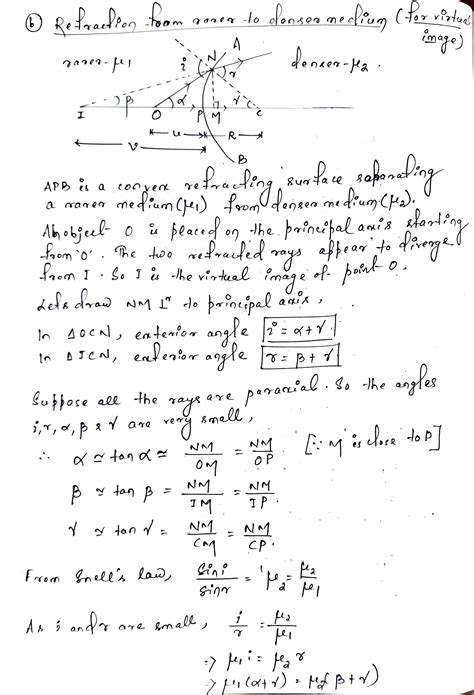 (b) Refraction from rarer to denser medium (for virtual
image)
A
rarer-μ1
i
N
r
denser-μ2.
I
β
O
α
P
M
γ
C
u
R
v
B
APB is a convex refracting surface separating
a rarer medium (μ1) from denser medium (μ2).
An object O is placed on the principal axis starting
from 'O'. The two refracted rays appear to diverge
from I. So I is the virtual image of point O.
Lets draw NM ⊥r to principal axis,
In ΔOCN, exterior angle i = α+γ.
In ΔICN, exterior angle r = β+γ
Suppose all the rays are paraxial. So the angles
i, r, α, β & γ are very small,
∴ α ≃ tan α ≃ NM/OM = NM/OP. [∵ M is close to P]
β ≃ tan β = NM/IM = NM/IP.
γ ≃ tan γ = NM/CM = NM/CP.
From Snell's law, sin i/sin r = ¹μ2 = μ2/μ1
As i and r are small, i/r = μ2/μ1
⇒ μ1 i = μ2 r
⇒ μ1(α+γ) = μ2(β+γ)